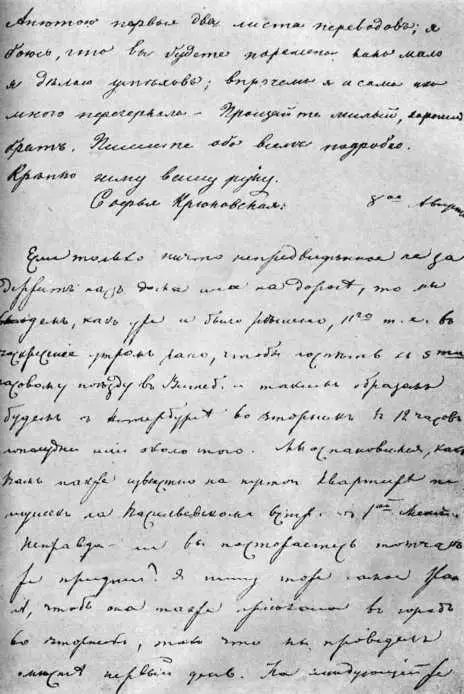 Анютою первые два листа переводовъ; я
боюсь, что вы будете поражены какъ мало
я дѣлаю успѣховъ; впрочемъ я и сама
много перечеркала – Прощайте милый, хорошій
братъ. Пишите обо всемъ подробно.
Крѣпко жму вашу руку.
Софья Крюковская. 8ое Августа
Если только ничто непредвидѣнное не за
держитъ насъ дома или на дорогѣ, то мы
выѣдемъ, какъ уже и было рѣшено, 11го т. е. въ
воскресенье утромъ рано, чтобы поспѣть къ 5ти
часовому поѣзду въ Витеб. и такимъ образомъ
будемъ въ Петербургѣ во вторникъ въ 12 часовъ
пополудни или около того. Мы остановимся, какъ
вамъ также извѣстно на квартирѣ
на Васильевскомъ остр. 1ой
Неправда ли вы постараетесь тотчасъ
же придти? Я пишу тоже
чтобы она также пріѣхала въ городъ
во вторникъ, такъ что мы проведемъ
вмѣстѣ первый день. На слѣдующій же